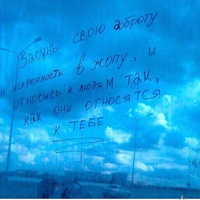 Засунь свою доброту
и искренность в жопу, и
относись к людям так,
как они относятся
к тебе